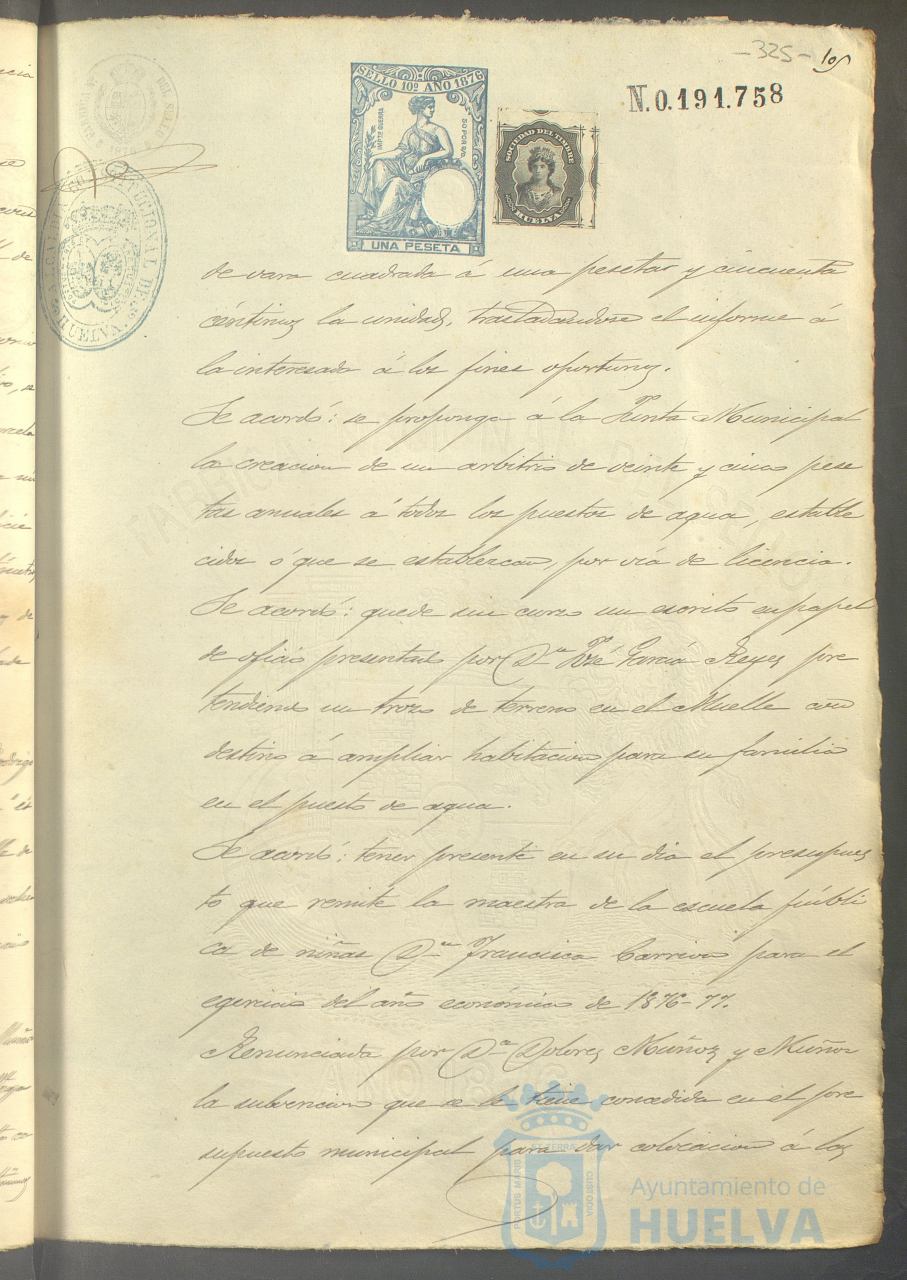 -325- 101
N. 0.191.758
SELLO 10º AÑO 1876
IMPTO GUERRA
50 POR 100
UNA PESETA
SOCIEDAD DEL TIMBRE
HUELVA
ALCALDIA CONSTITUCIONAL DE
HUELVA
de vara cuadrada á una pesetas y cincuenta
céntimos la unidad, trasladandose el informe á
la interesada á los fines oportunos.
Se acordó: se proponga á la Junta Municipal
la creacion de un arbitrio de veinte y cinco pese
tas anuales á todos los puestos de agua, estable
cidos ó que se establezcan, por vía de licencia.
Se acordó: quede sin curso un escrito en papel
de oficio presentado por Dn José García Reyes pre
tendiendo un trozo de terreno en el Muelle con
destino á ampliar habitacion para su familia
en el puesto de agua.
Se acordó: tener presente en su dia el presupues
to que remite la maestra de la escuela públi
ca de niñas Dª Francisca para el
egercicio del año económico de 1876-77.
Renunciada por Dª Dolores Muñoz y Muñoz
la subvencion que se le tiene concedida en el pre
supuesto municipal para dar colocacion á los
AÑO 1876
PORTUS MARIS
ET TERRAE
CUSTODIA
Ayuntamiento de
HUELVA